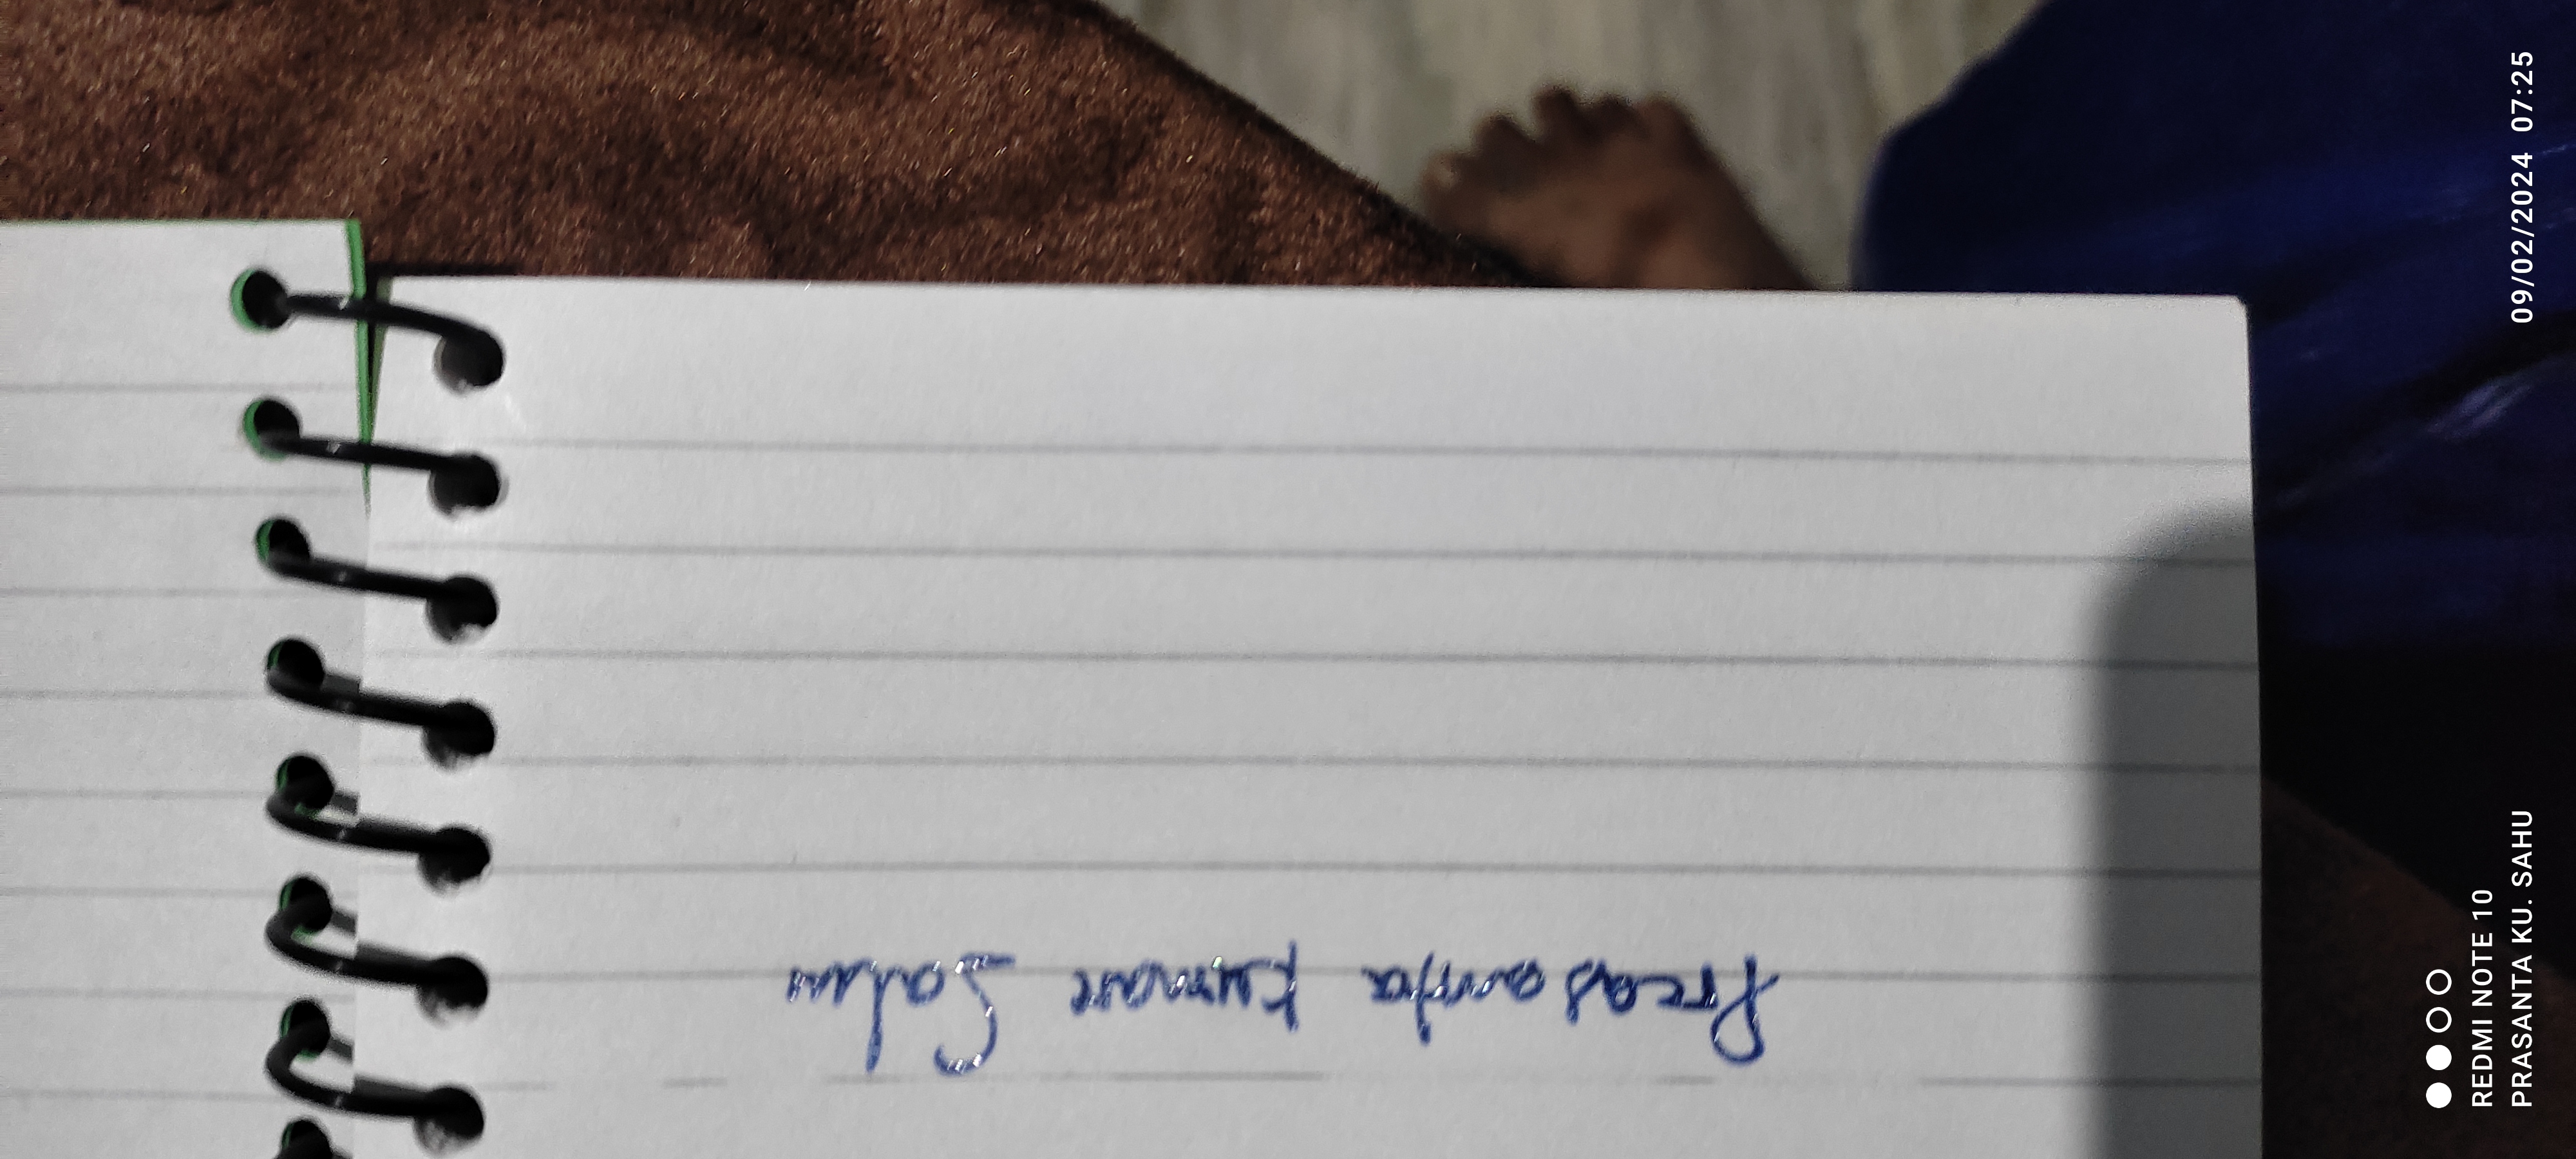 Prasanta Kumar Sahu
REDMI NOTE 10
PRASANTA KU. SAHU
09/02/2024 07:25